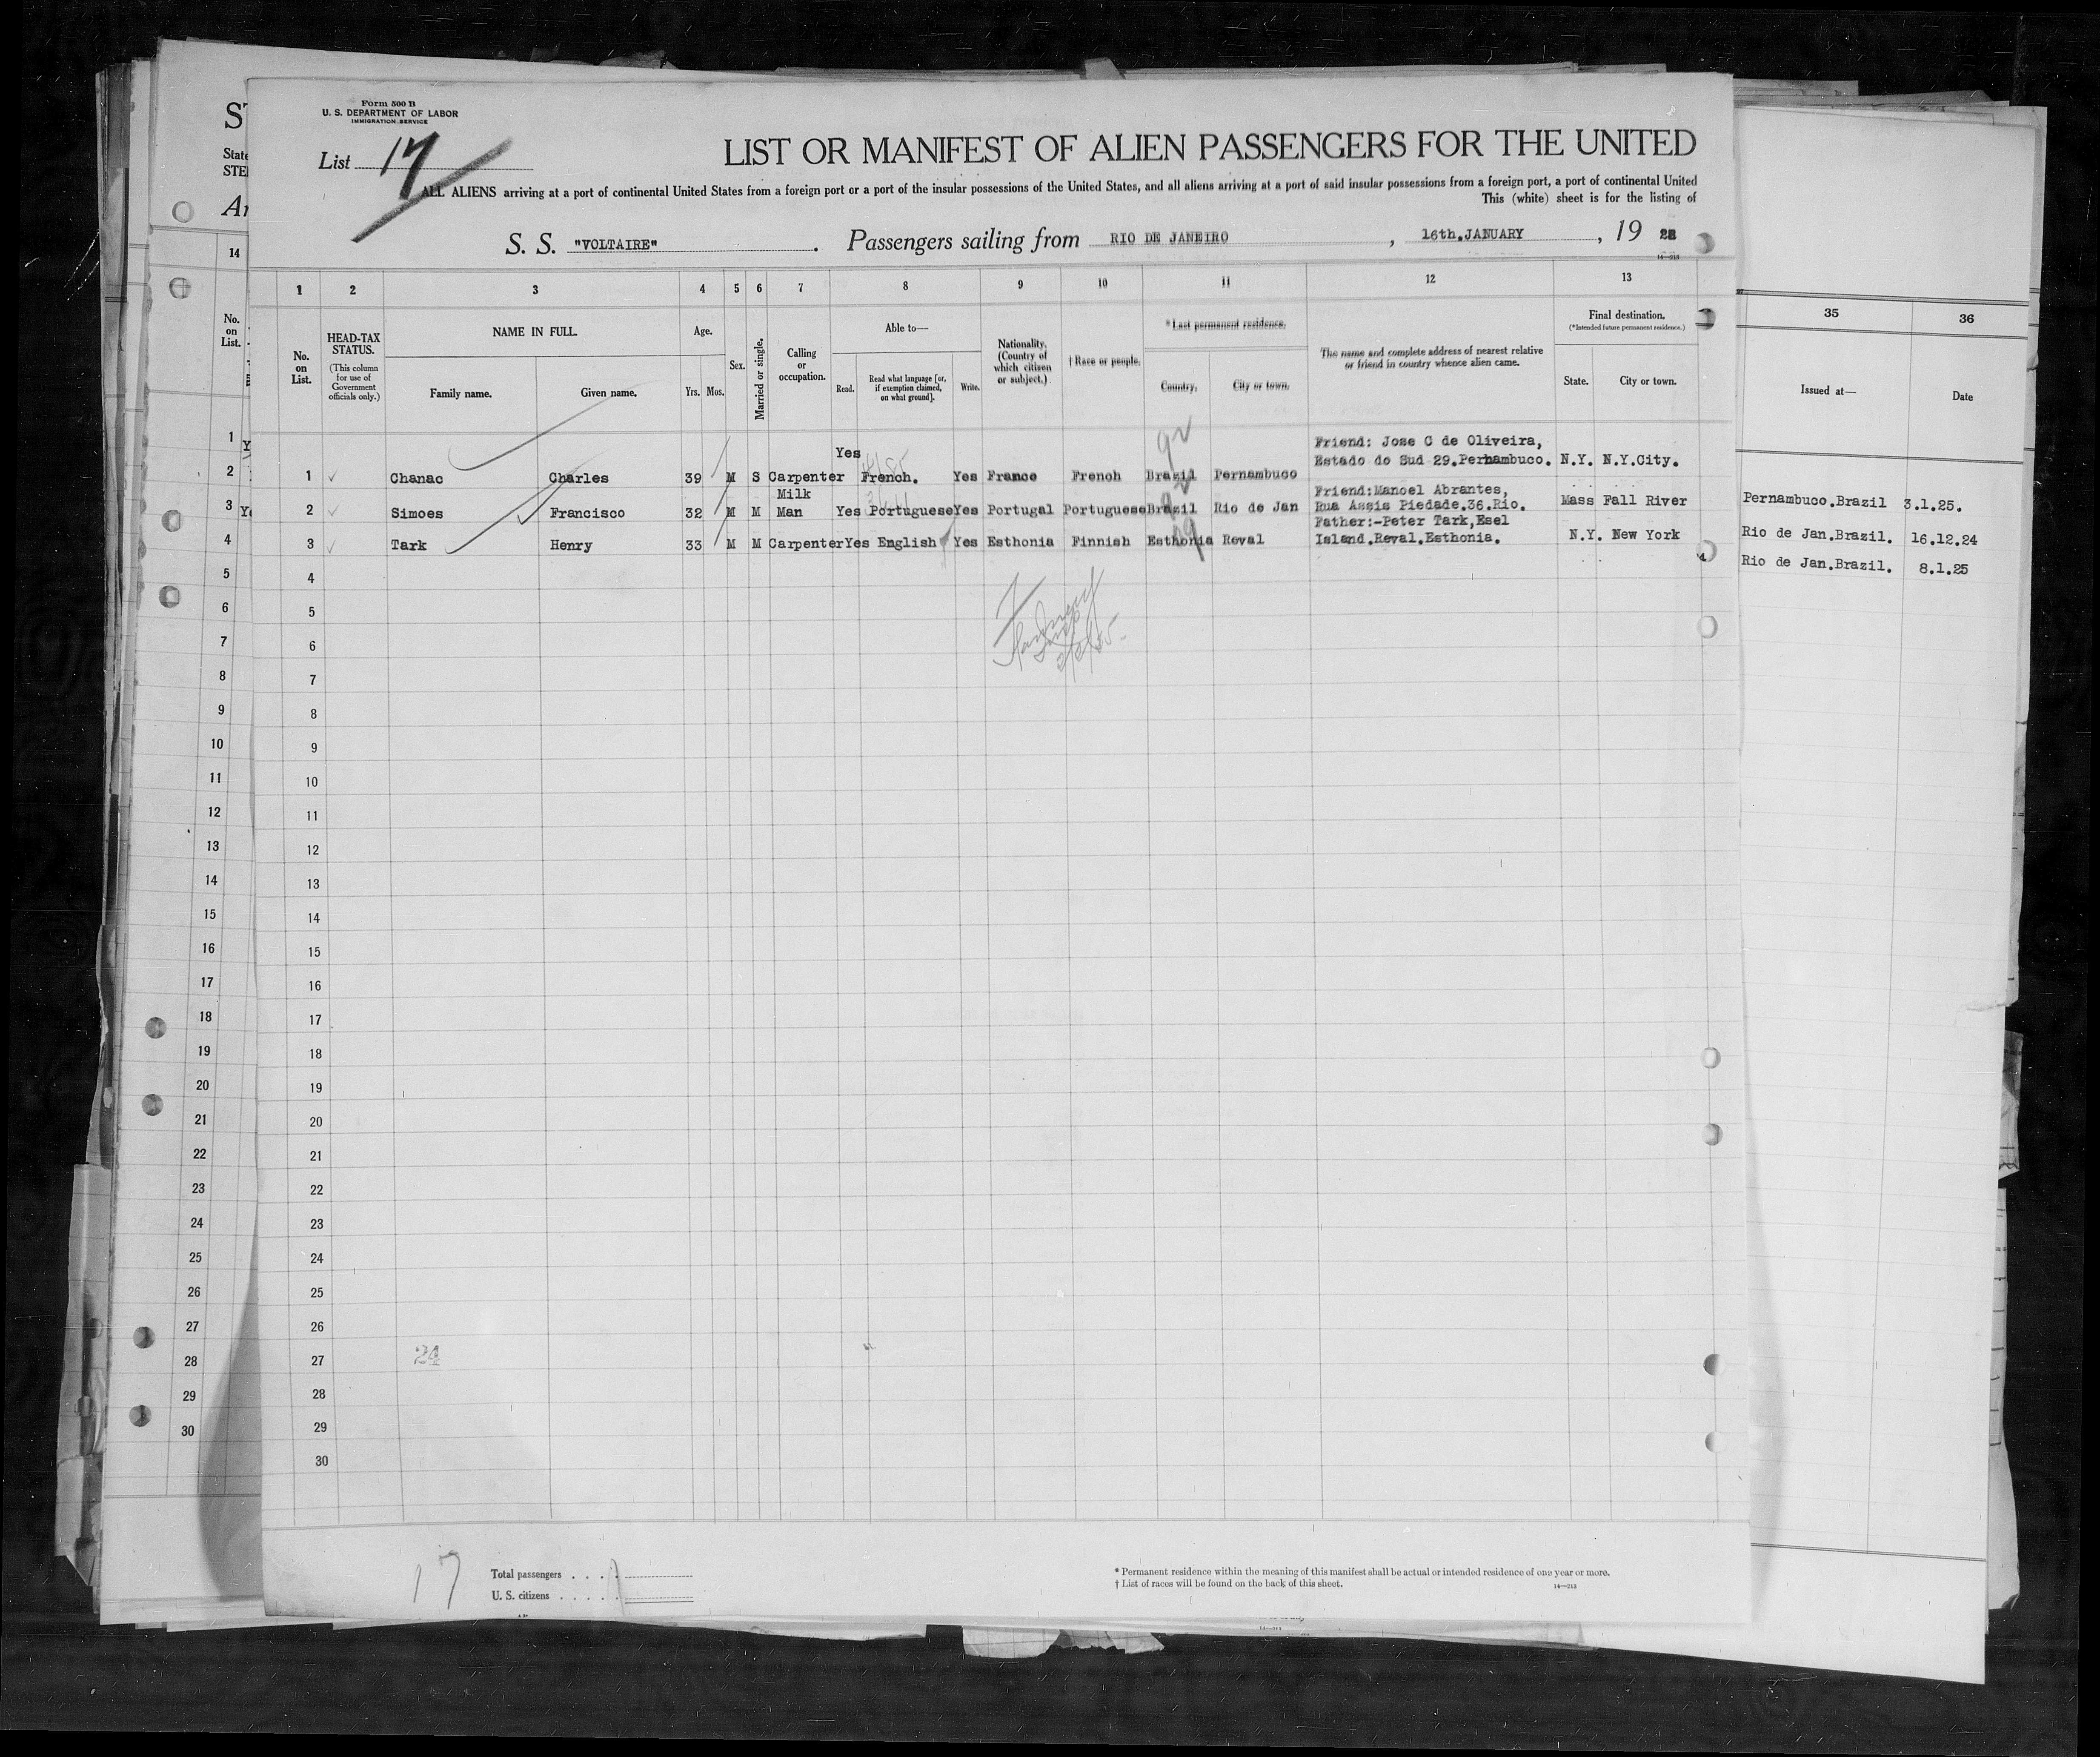 Form 500 B
U. S. DEPARTMENT OF LABOR
IMMIGRATION SERVICE
List 17
LIST OR MANIFEST OF ALIEN PASSENGERS FOR THE UNITED
ALL ALIENS arriving at a port of continental United States from a foreign port or a port of the insular possessions of the United States, and all aliens arriving at a port of said insular possessions from a foreign port, a port of continental United
This (white) sheet is for the listing of
S. S. "VOLTAIRE". Passengers sailing from RIO DE JANEIRO, 16th.JANUARY, 19
14—213
1 2 3 4 5 6 7 8 9 10 11 12 13
No. on List.
HEAD-TAX STATUS.
(This column for use of Government officials only.)
NAME IN FULL.
Family name. Given name.
Age.
Yrs. Mos.
Sex.
Married or single.
Calling or occupation.
Able to—
Read. Read what language [or, if exemption claimed, on what ground]. Write.
Nationality. (Country of which citizen or subject.)
† Race or people.
* Last permanent residence.
Country. City or town.
The name and complete address of nearest relative or friend in country whence alien came.
Final destination.
(*Intended future permanent residence.)
State. City or town.
1 Chanac Charles 39 M S Carpenter Yes French. Yes France French Brazil Pernambuco Friend: Jose C de Oliveira, Estado do Sud 29.Pernambuco. N.Y. N.Y.City.
2 Simoes Francisco 32 M M Milk Man Yes Portuguese Yes Portugal Portuguese Brazil Rio de Jan Friend:Manoel Abrantes, Rua Assis Piedade.36.Rio. Mass Fall River
3 Tark Henry 33 M M Carpenter Yes English Yes Esthonia Finnish Esthonia Reval Father:-Peter Tark,Esel Island.Reval.Esthonia. N.Y. New York
4
5
6
7
8
9
10
11
12
13
14
15
16
17
18
19
20
21
22
23
24
25
26
27
28
29
30
24
17
Total passengers . . . .
U. S. citizens . . . . .
* Permanent residence within the meaning of this manifest shall be actual or intended residence of one year or more.
† List of races will be found on the back of this sheet.
14—213
State
STE
14
No. on List.
1
2
3
4
5
6
7
8
9
10
11
12
13
14
15
16
17
18
19
20
21
22
23
24
25
26
27
28
29
30
35 36
Issued at— Date
Pernambuco.Brazil 3.1.25.
Rio de Jan.Brazil. 16.12.24
Rio de Jan.Brazil. 8.1.25